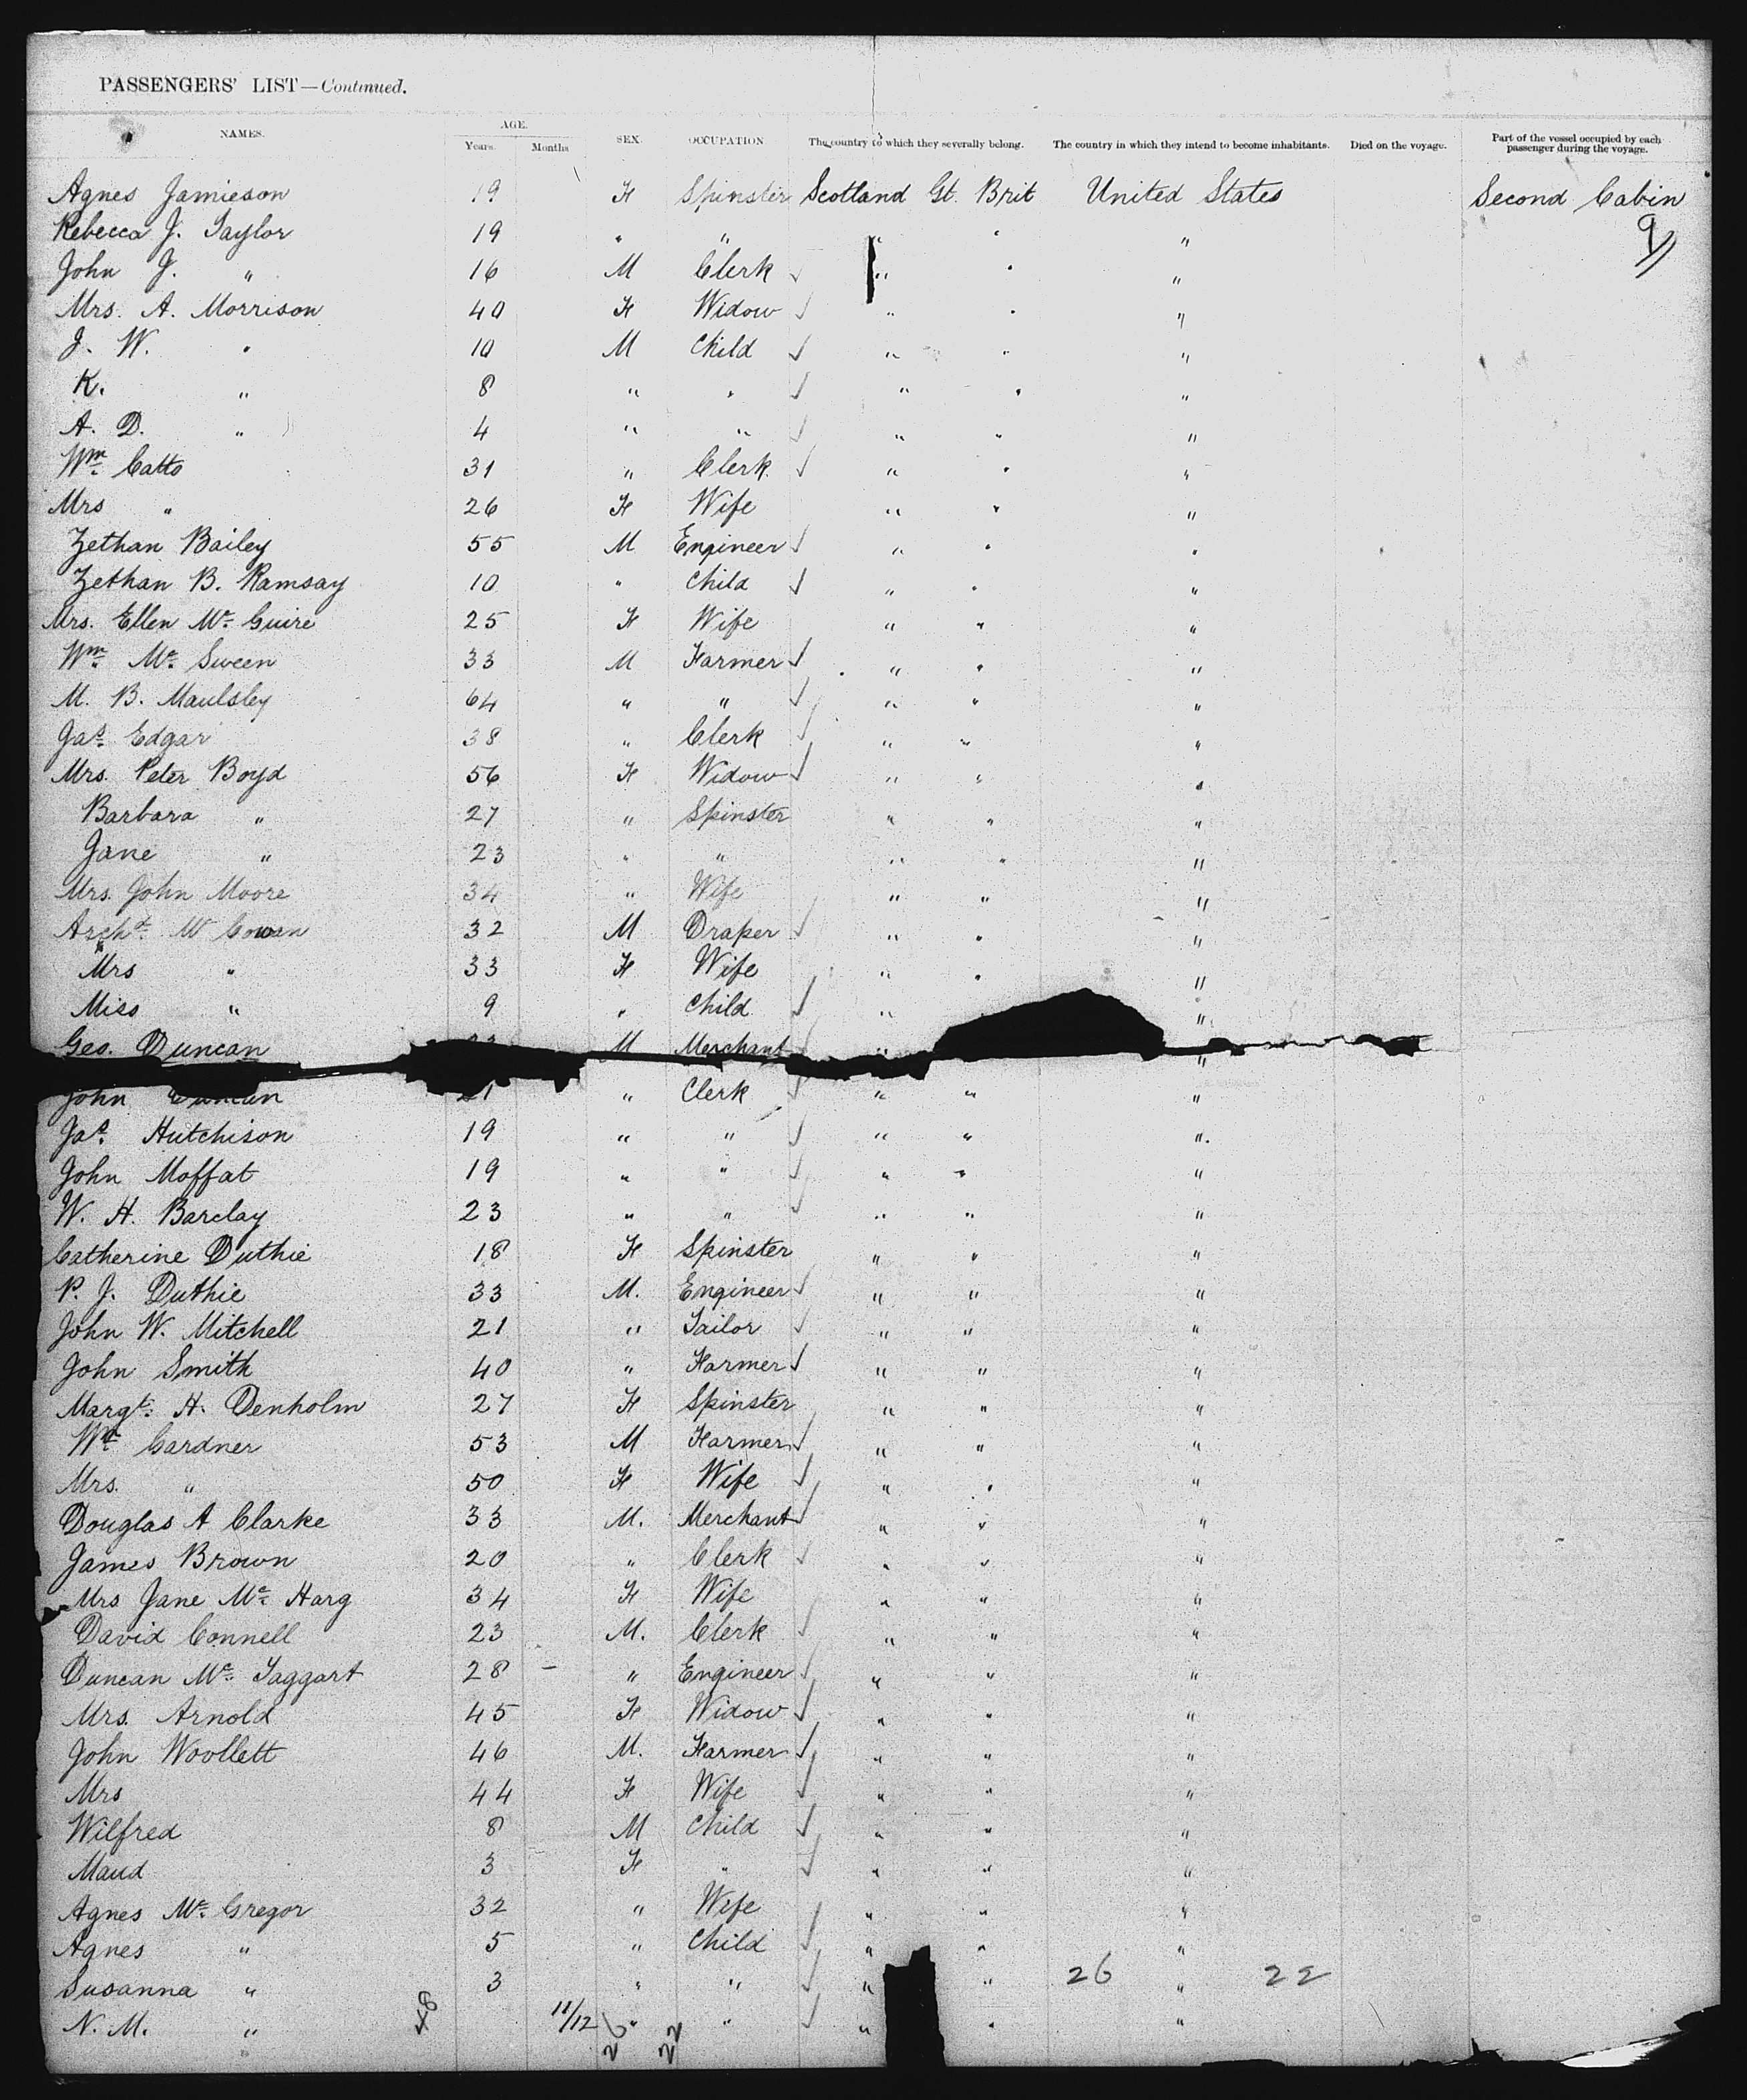 PASSENGERS' LIST—Continued.
NAMES. AGE. Years. Months SEX. OCCUPATION The country to which they severally belong. The country in which they intend to become inhabitants. Died on the voyage. Part of the vessel occupied by each passenger during the voyage.
Agnes Jamieson 19 F Spinster Scotland Gt. Brit United States Second Cabin
Rebecca J. Taylor 19 " " " " "
John J. " 16 M Clerk " " "
Mrs. A. Morrison 40 F Widow " " "
J. W. " 10 M Child " " "
K. " 8 " " " " "
A. D. " 4 " " " " "
Wm. Catto 31 " Clerk " " "
Mrs " 26 F Wife " " "
Zethan Bailey 55 M Engineer " " "
Zethan B. Ramsay 10 " Child " " "
Mrs. Ellen Mc Guire 25 F Wife " " "
Wm. Mc Sween 33 M Farmer " " "
M. B. Maulsley 64 " " " " "
Jas. Edgar 38 " Clerk " " "
Mrs. Peter Boyd 56 F Widow " " "
Barbara " 27 " Spinster " " "
Jane " 23 " " " " "
Mrs. John Moore 34 " Wife " " "
Archd. Mc Cowan 32 M Draper " " "
Mrs " 33 F Wife " " "
Miss " 9 " Child " "
Geo. Duncan M Merchant " "
John Duncan " Clerk " " "
Jas. Hutchison 19 " " " " "
John Moffat 19 " " " " "
W. H. Barclay 23 " " " " "
Catherine Duthie 18 F Spinster " " "
P. J. Duthie 33 M. Engineer " " "
John W. Mitchell 21 " Tailor " " "
John Smith 40 " Farmer " " "
Margt. H. Denholm 27 F Spinster " " "
Wm. Gardner 53 M Farmer " " "
Mrs. " 50 F Wife " " "
Douglas A Clarke 33 M. Merchant " " "
James Brown 20 " Clerk " " "
Mrs Jane Mc Harg 34 F Wife " " "
David Connell 23 M. Clerk " " "
Duncan Mc Taggart 28 – " Engineer " " "
Mrs. Arnold 45 F Widow " " "
John Woollett 46 M. Farmer " " "
Mrs 44 F Wife " " "
Wilfred 8 M Child " " "
Maud 3 F " " " "
Agnes Mc Gregor 32 " Wife " " "
Agnes " 5 " Child " " "
Susanna " 3 " " " " 26 " 22
N. M. " 48 11/12 " " " " "
26 22